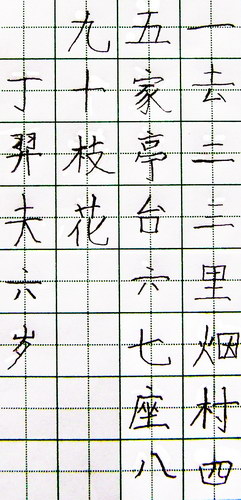 一去二三里烟村四
五家亭台六七座八
九十枝花
丁羿夫六岁